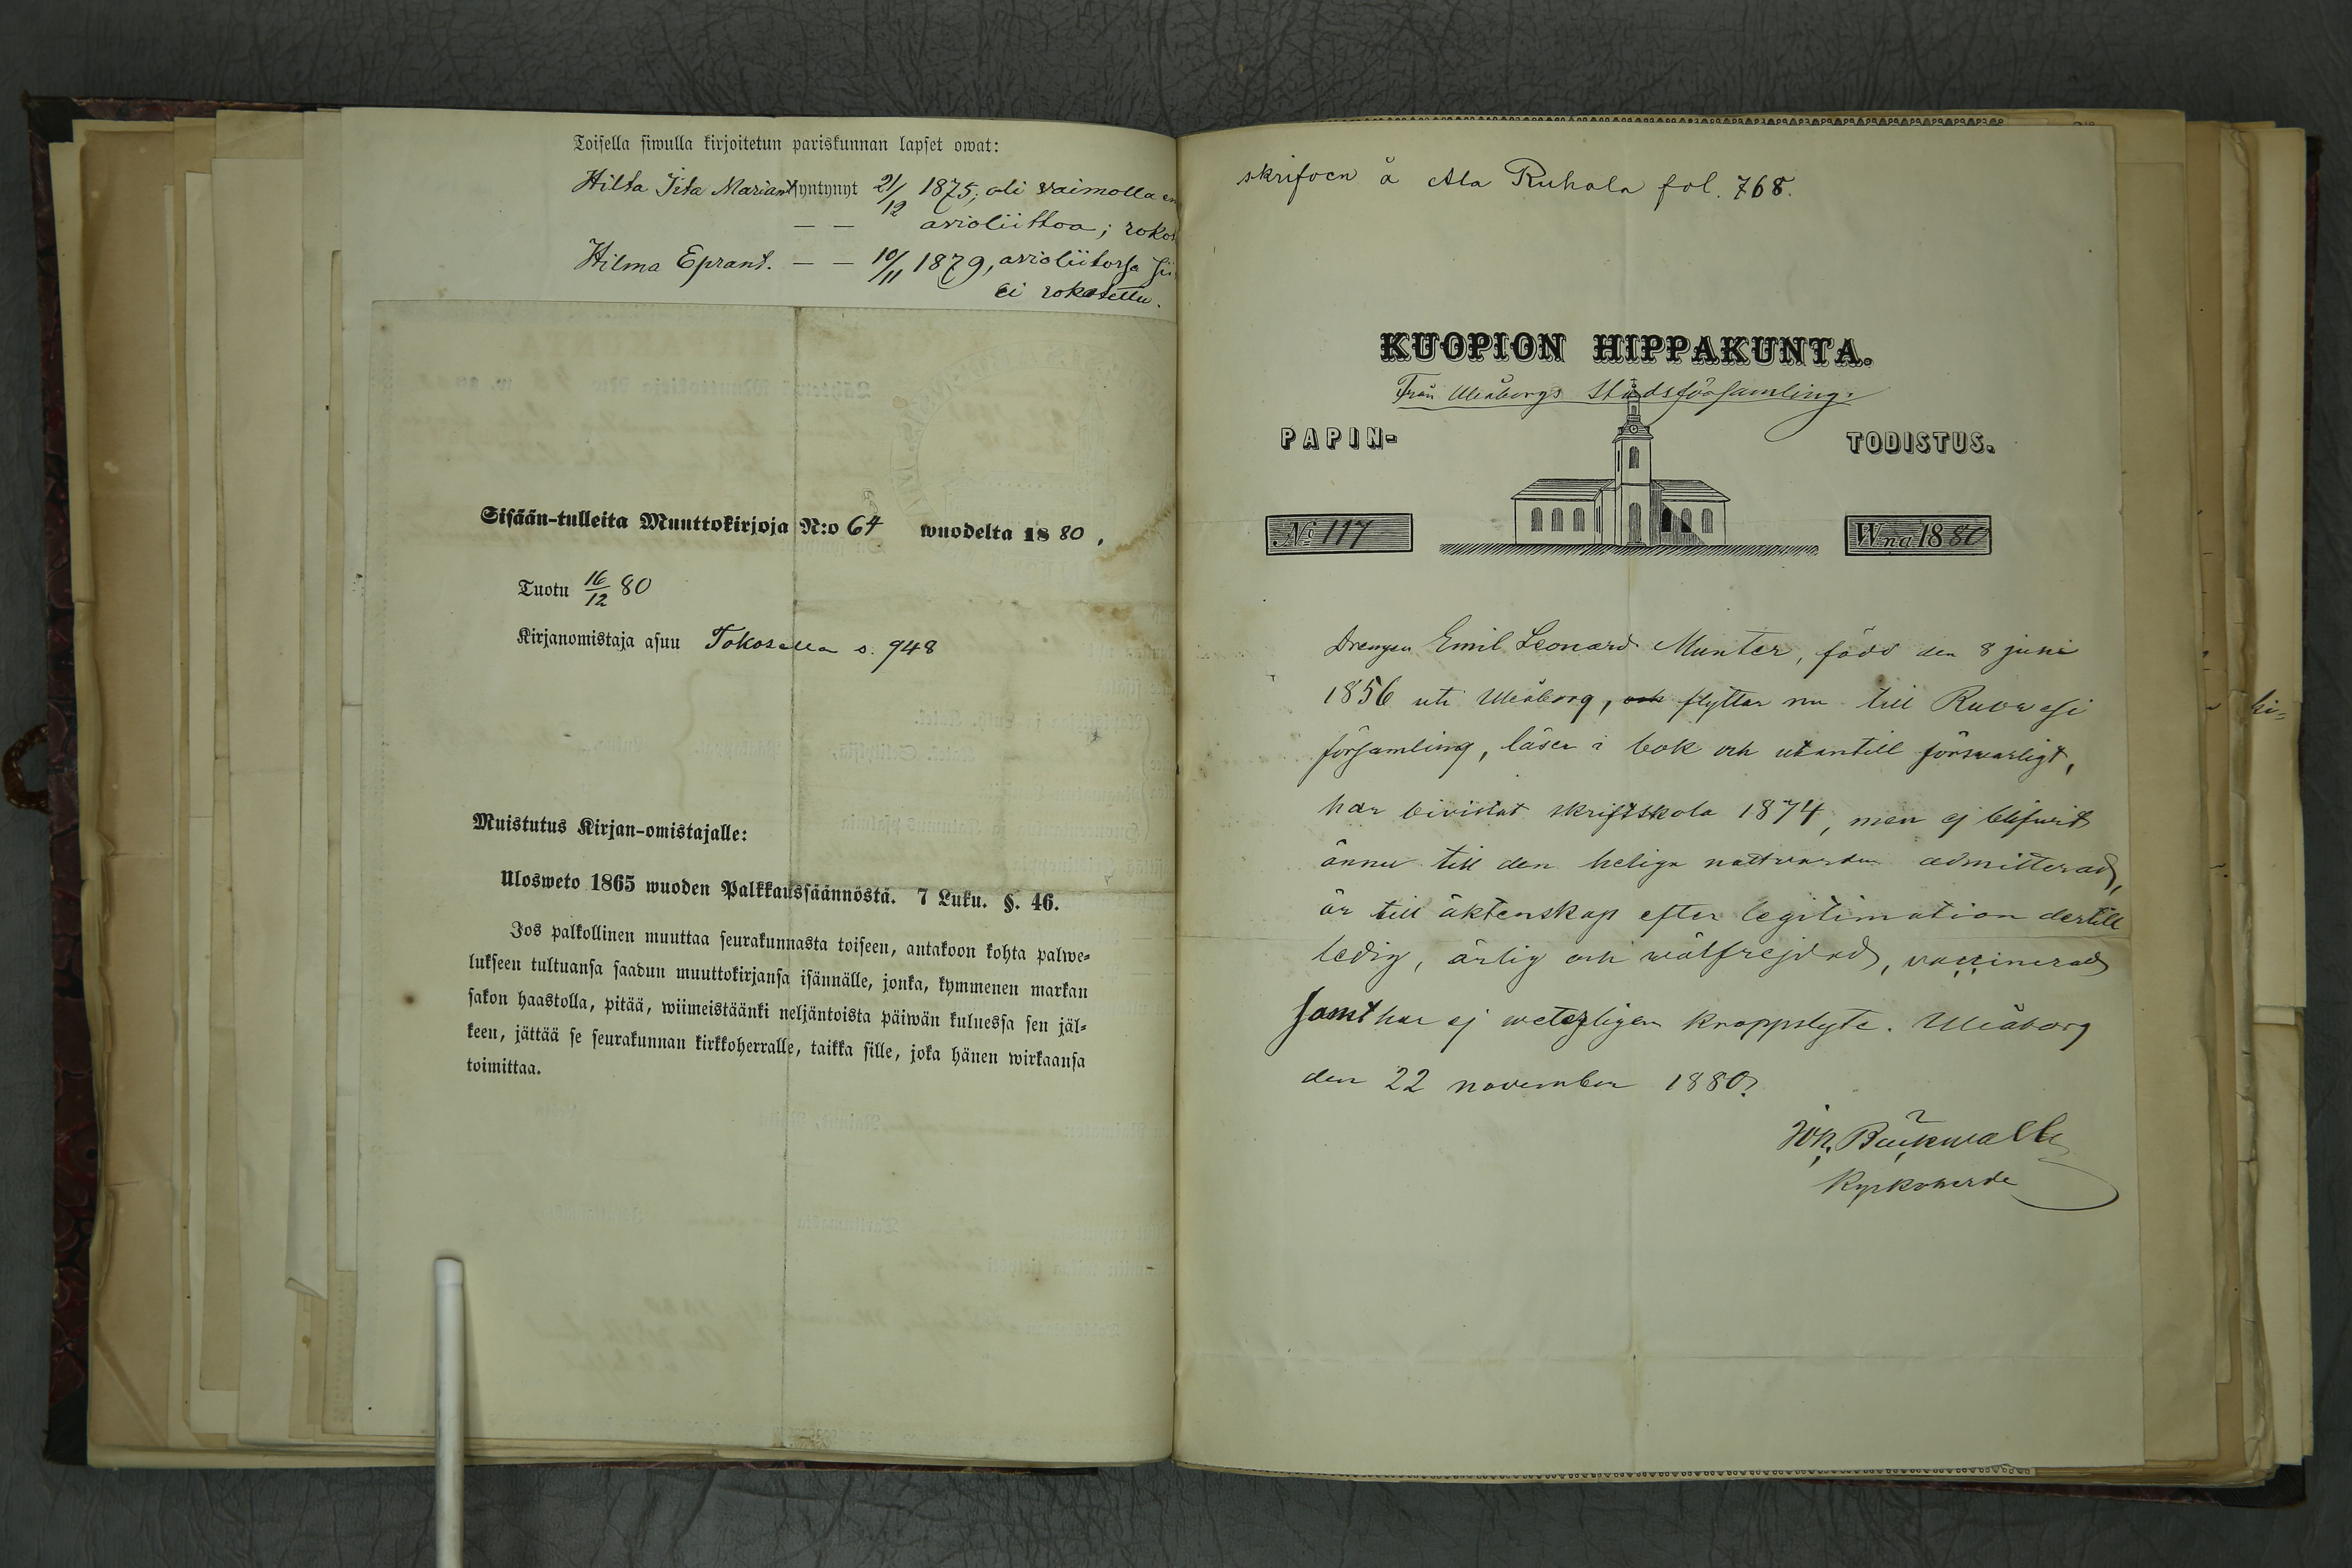 Toisella siwulla kirjoitetun pariskunnan lapset owat:
Hilta Iita Mariant. syntynyt 21/12 1875; oli vaimolla
— — avioliittoa;
Hilma Eprant. — — 10/11 1879, avioliitossa
ei rokotettu.
Sisään-tulleita Muuttokirjoja N:o 64 wuodelta 1880,
Tuotu 16/12 80
Kirjanomistaja asuu Tokosella s. 948
Muistutus Kirjan-omistajalle:
Ulosweto 1865 wuoden Palkkaussäännöstä. 7 Luku. §. 46.
Jos palkollinen muuttaa seurakunnasta toiseen, antakoon kohta palwe-
lukseen tultuansa saadun muuttokirjansa isännälle, jonka, kymmenen markan
sakon haastolla, pitää, wiimeistäänki neljäntoista päiwän kuluessa sen jäl-
keen, jättää se seurakunnan kirkkoherralle, taikka sille, joka hänen wirkaansa
toimittaa.
skrifven å Ala Ruhala fol. 768.
KUOPION HIPPAKUNTA.
Från Uleåborgs Stadsförsamling.
PAPIN-
TODISTUS.
No 117
Wna 1880
Drengen Emil Leonard Munter, född den 8 juni
1856 uti Uleåborg, och flyttar nu till Ruovesi
församling, läser i bok och utantill försvarligt,
har bivistat skriftskola 1874, men ej blifvit
ännu till den heliga nattvarden admitterad,
är till äktenskap efter legitimation dertill
ledig, ärlig och wälfrejdad, vaccinerad
samt har ej weterligen kroppslyte. Uleåborg
den 22 november 1880.
Joh. Bäckwall
Kyrkoherde